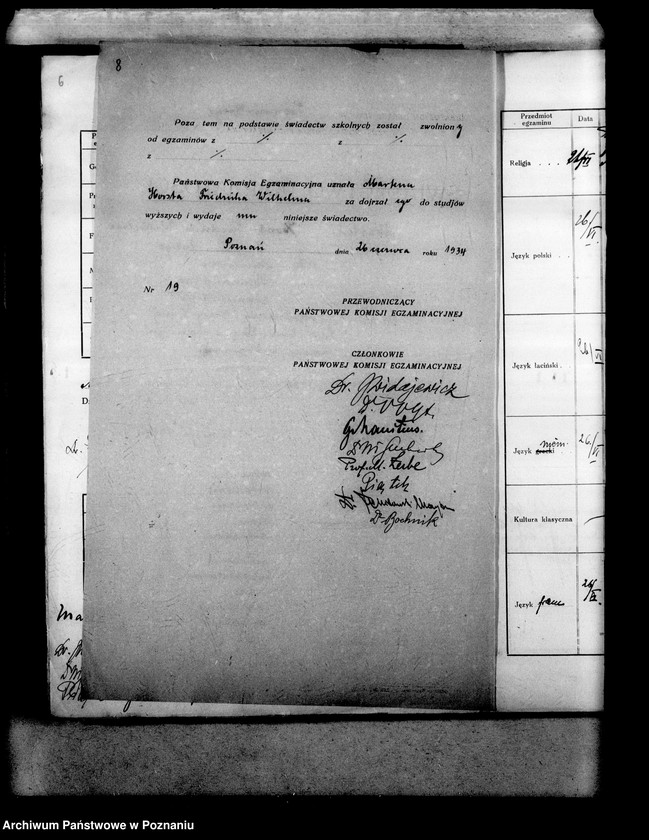 6
8
Poza tem na podstawie świadectw szkolnych został zwolniony
od egzaminów z ·/. z ·/.
z ·/.
Państwowa Komisja Egzaminacyjna uznała Martena
Horsta Friedricha Wilhelma za dojrzałego do studjów
wyższych i wydaje mu niniejsze świadectwo.
Poznań dnia 26 czerwca roku 1934
Nr 19
PRZEWODNICZĄCY
PAŃSTWOWEJ KOMISJI EGZAMINACYJNEJ
CZŁONKOWIE
PAŃSTWOWEJ KOMISJI EGZAMINACYJNEJ
Dr. Widajewicz
Dr. Vogt.
Dr
Prof. M. Zerbe
Piątek
Dr
Dr Bochnik
Przedmiot egzaminu Data
Religja
Język polski 26/VI
Język łaciński 26/VI
Język grecki niem. 26/VI
Kultura klasyczna
Język franc
Archiwum Państwowe w Poznaniu